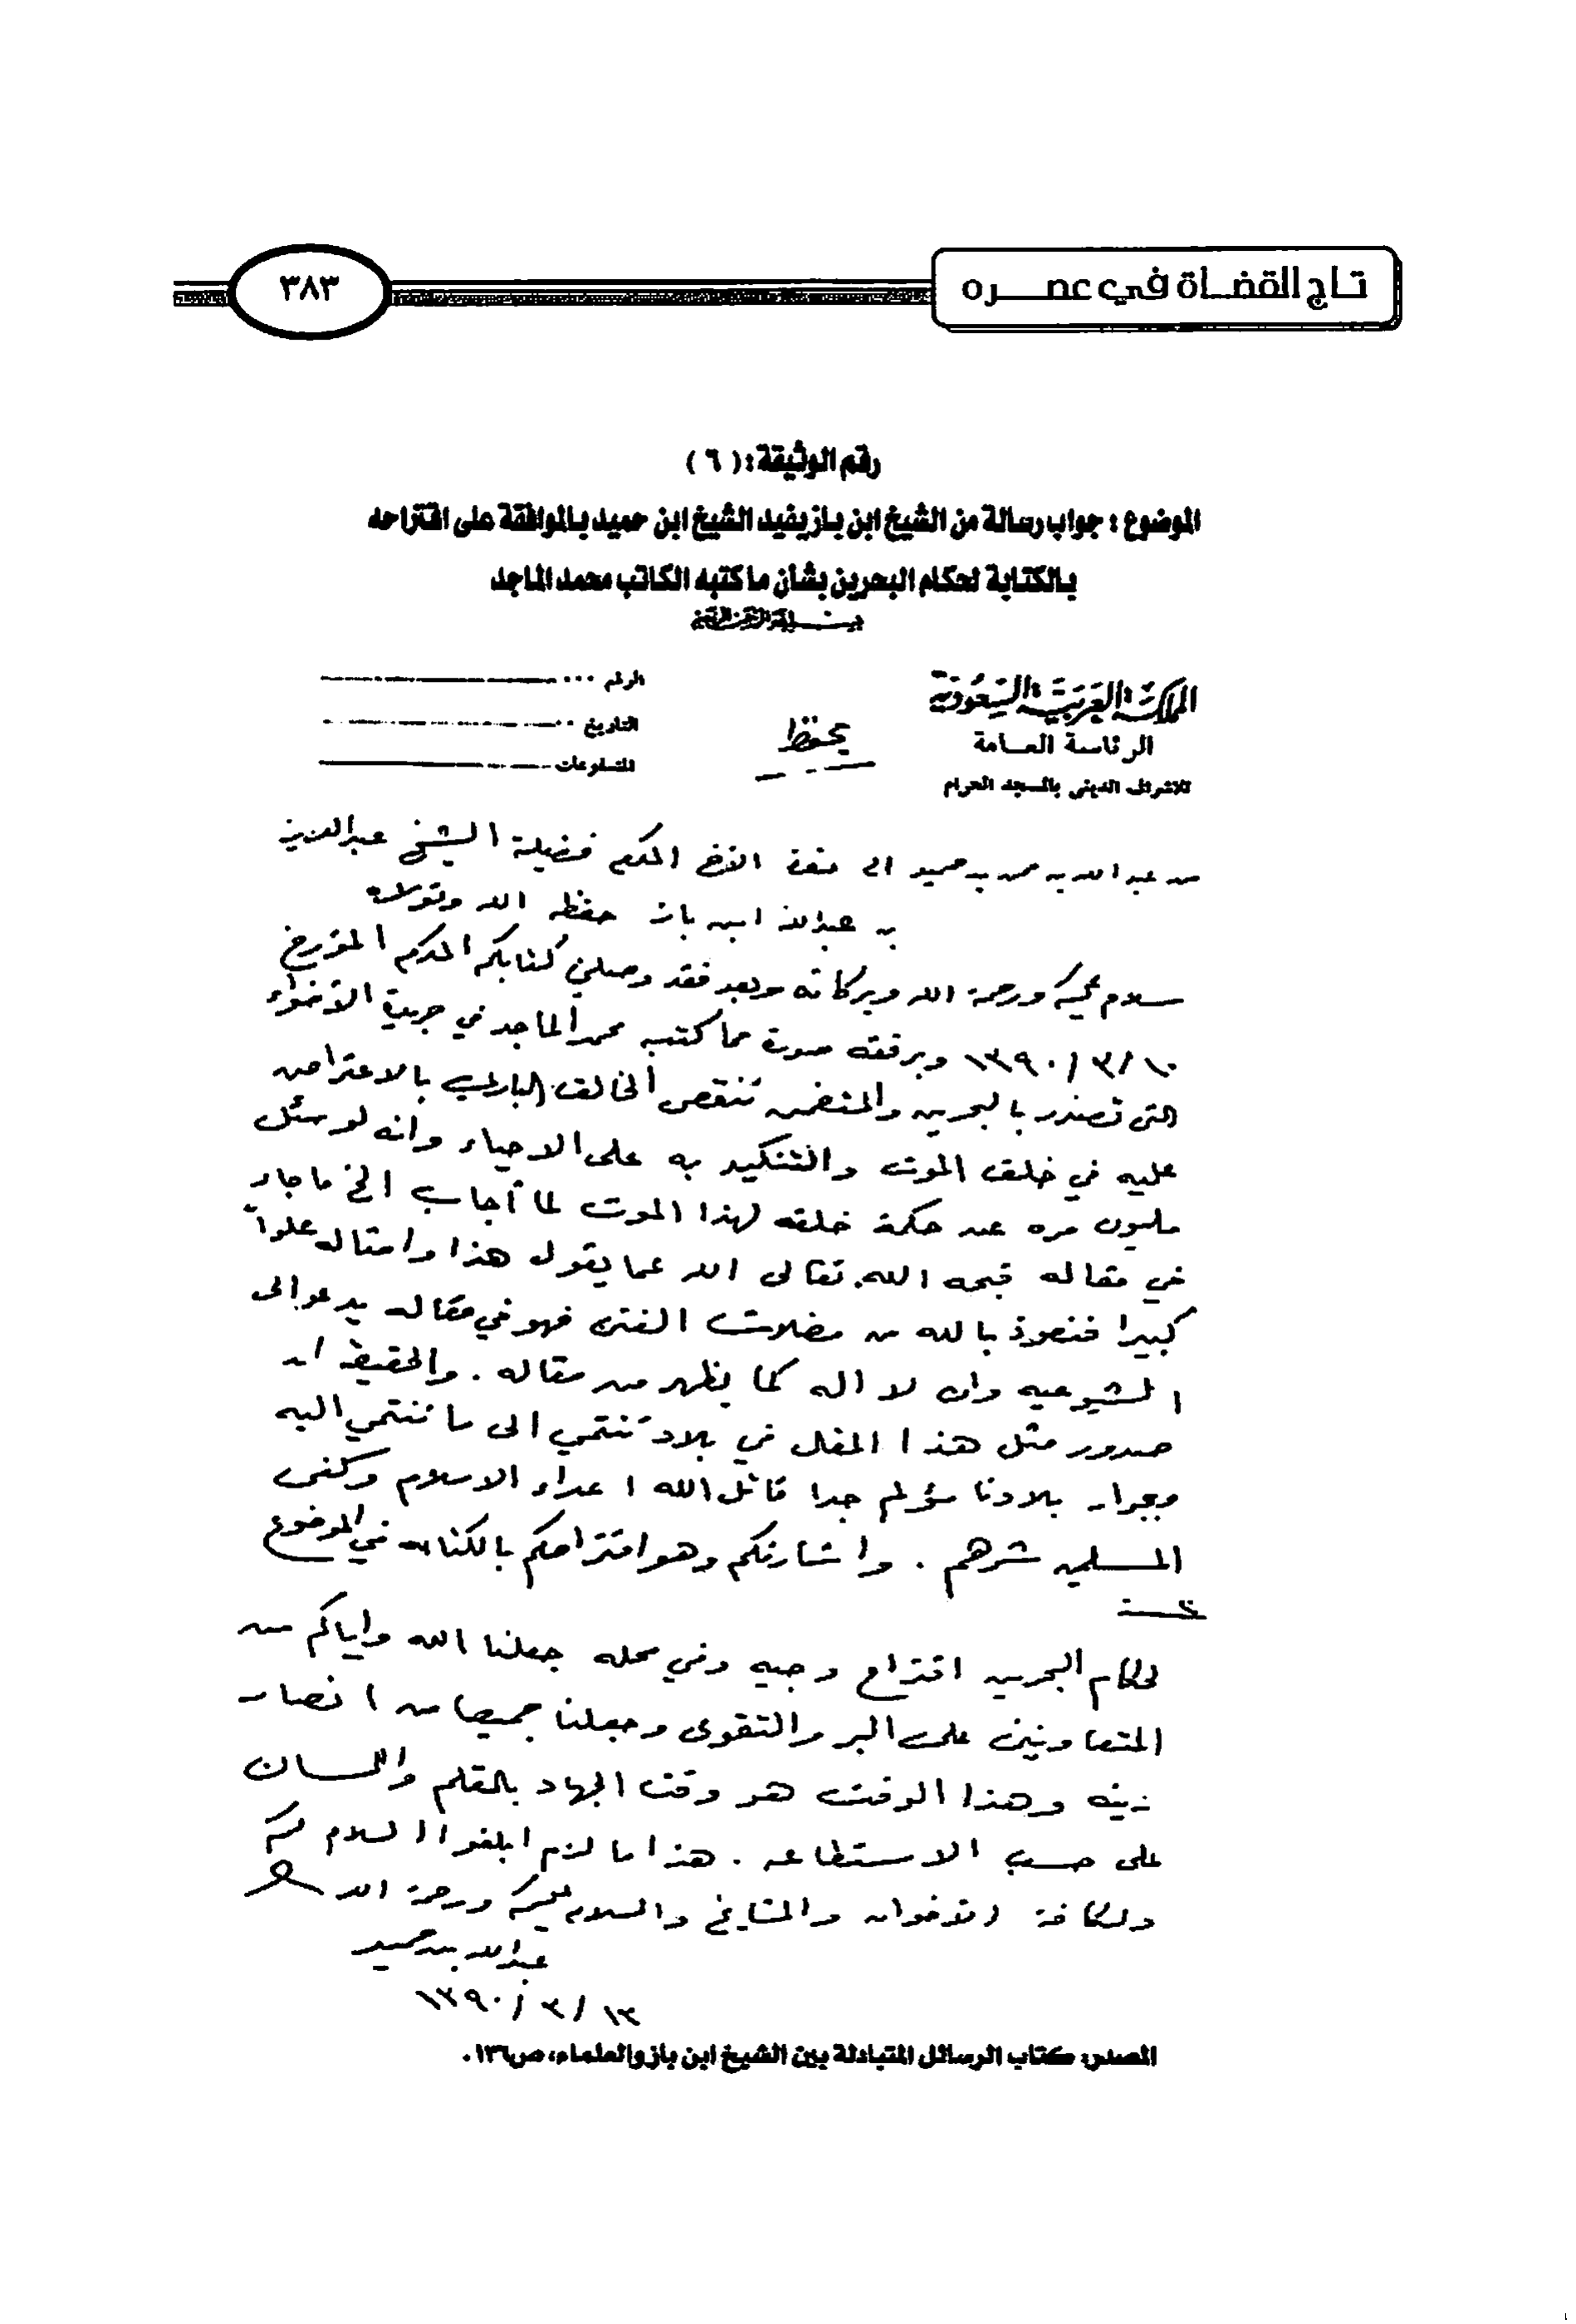 تاج القضاة في عصره
٣٨٣
رقم الوثيقة: (٦)
الموضوع: جواب رسالة من الشيخ ابن باز يفيد الشيخ ابن حميد بالموافقة على اقتراحه
بالكتابة لحكام البحرين بشأن ما كتبه الكاتب محمد الماجد
المملكة العربية السعودية
الرئاسة العامة
للاشراف الديني بالمسجد الحرام
يحفظ
الرقم
التاريخ
المشفوعات
من عبد الله بن محمد بن حميد الى حضرة الأخ المكرم فضيلة الشيخ عبدالعزيز
بن عبدالله ابن باز حفظه الله وتولاه
سلام عليكم ورحمة الله وبركاته وبعد فقد وصلني كتابكم المكرم المؤرخ
١٠/٣/١٣٩٠ وبرفقه صورة مما كتبه محمد الماجد في جريدة الأضواء
التي تصدر بالبحرين والمتضمن تنقص الخالق الباري بالاعتراض
عليه في خلق الموت والتنكيد به على الاحياء وانه لو سئل
مليون مره عن حكمة خلقه لهذا الموت لما أجاب الخ ما جاء
في مقاله قبحه الله. تعالى الله عما يقول هذا وامثاله علواً
كبيرا فنعوذ بالله من مضلات الفتن فهو في مقاله يدعو الى
الشيوعيه وان لا اله كما يظهر من مقاله. والحقيقة ان
صدور مثل هذا المقال في بلاد تنتمي الى ما تنتمي اليه
وبجوار بلادنا مؤلم جدا قاتل الله اعداء الاسلام وكفى
المسلمين شرهم. واشارتكم وهو اقتراحكم بالكتابه في الموضوع
لحكام البحرين اقتراح وجيه وفي محله جعلنا الله واياكم من
المتعاونين على البر والتقوى وجعلنا جميعا من انصار
دينه وهذا الوقت هو وقت الجهاد بالقلم واللسان
على حسب الاستطاعه. هذا ما لزم ابلغوا السلام
ولكافة الاخوان والمشايخ والسلام عليكم ورحمة الله
عبدالله بن حميد
١٣/٣/١٣٩٠
المصدر: كتاب الرسائل المتبادلة بين الشيخ ابن باز والعلماء، ص١٣٦.